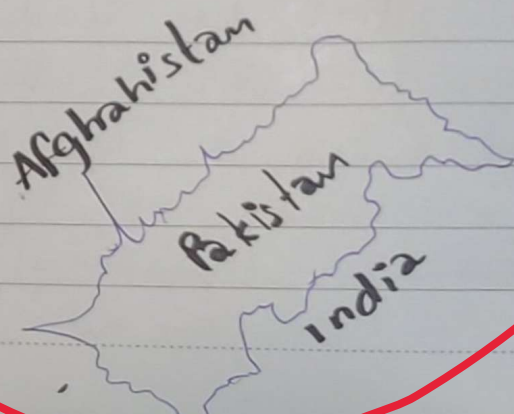 Afghahistan
Pakistan
India